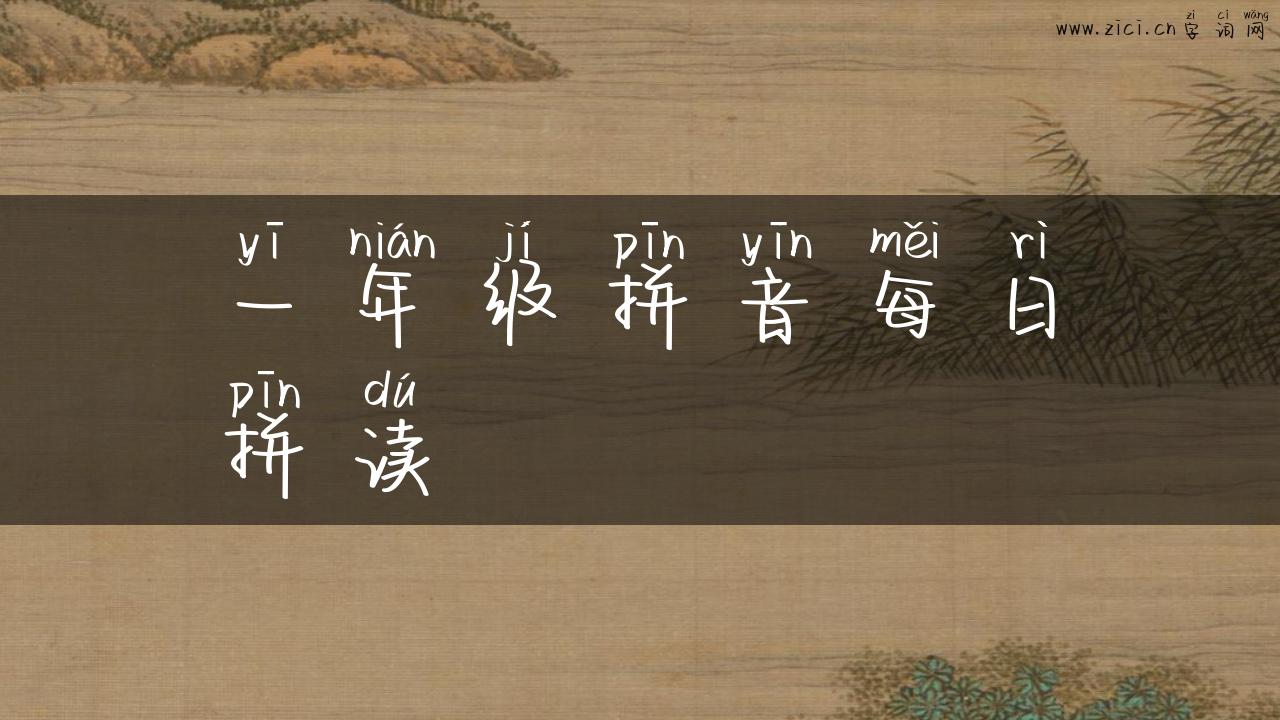 zì cí wǎng
www.zici.cn 字 词 网
yī nián jí pīn yīn měi rì
一 年 级 拼 音 每 日
pīn dú
拼 读